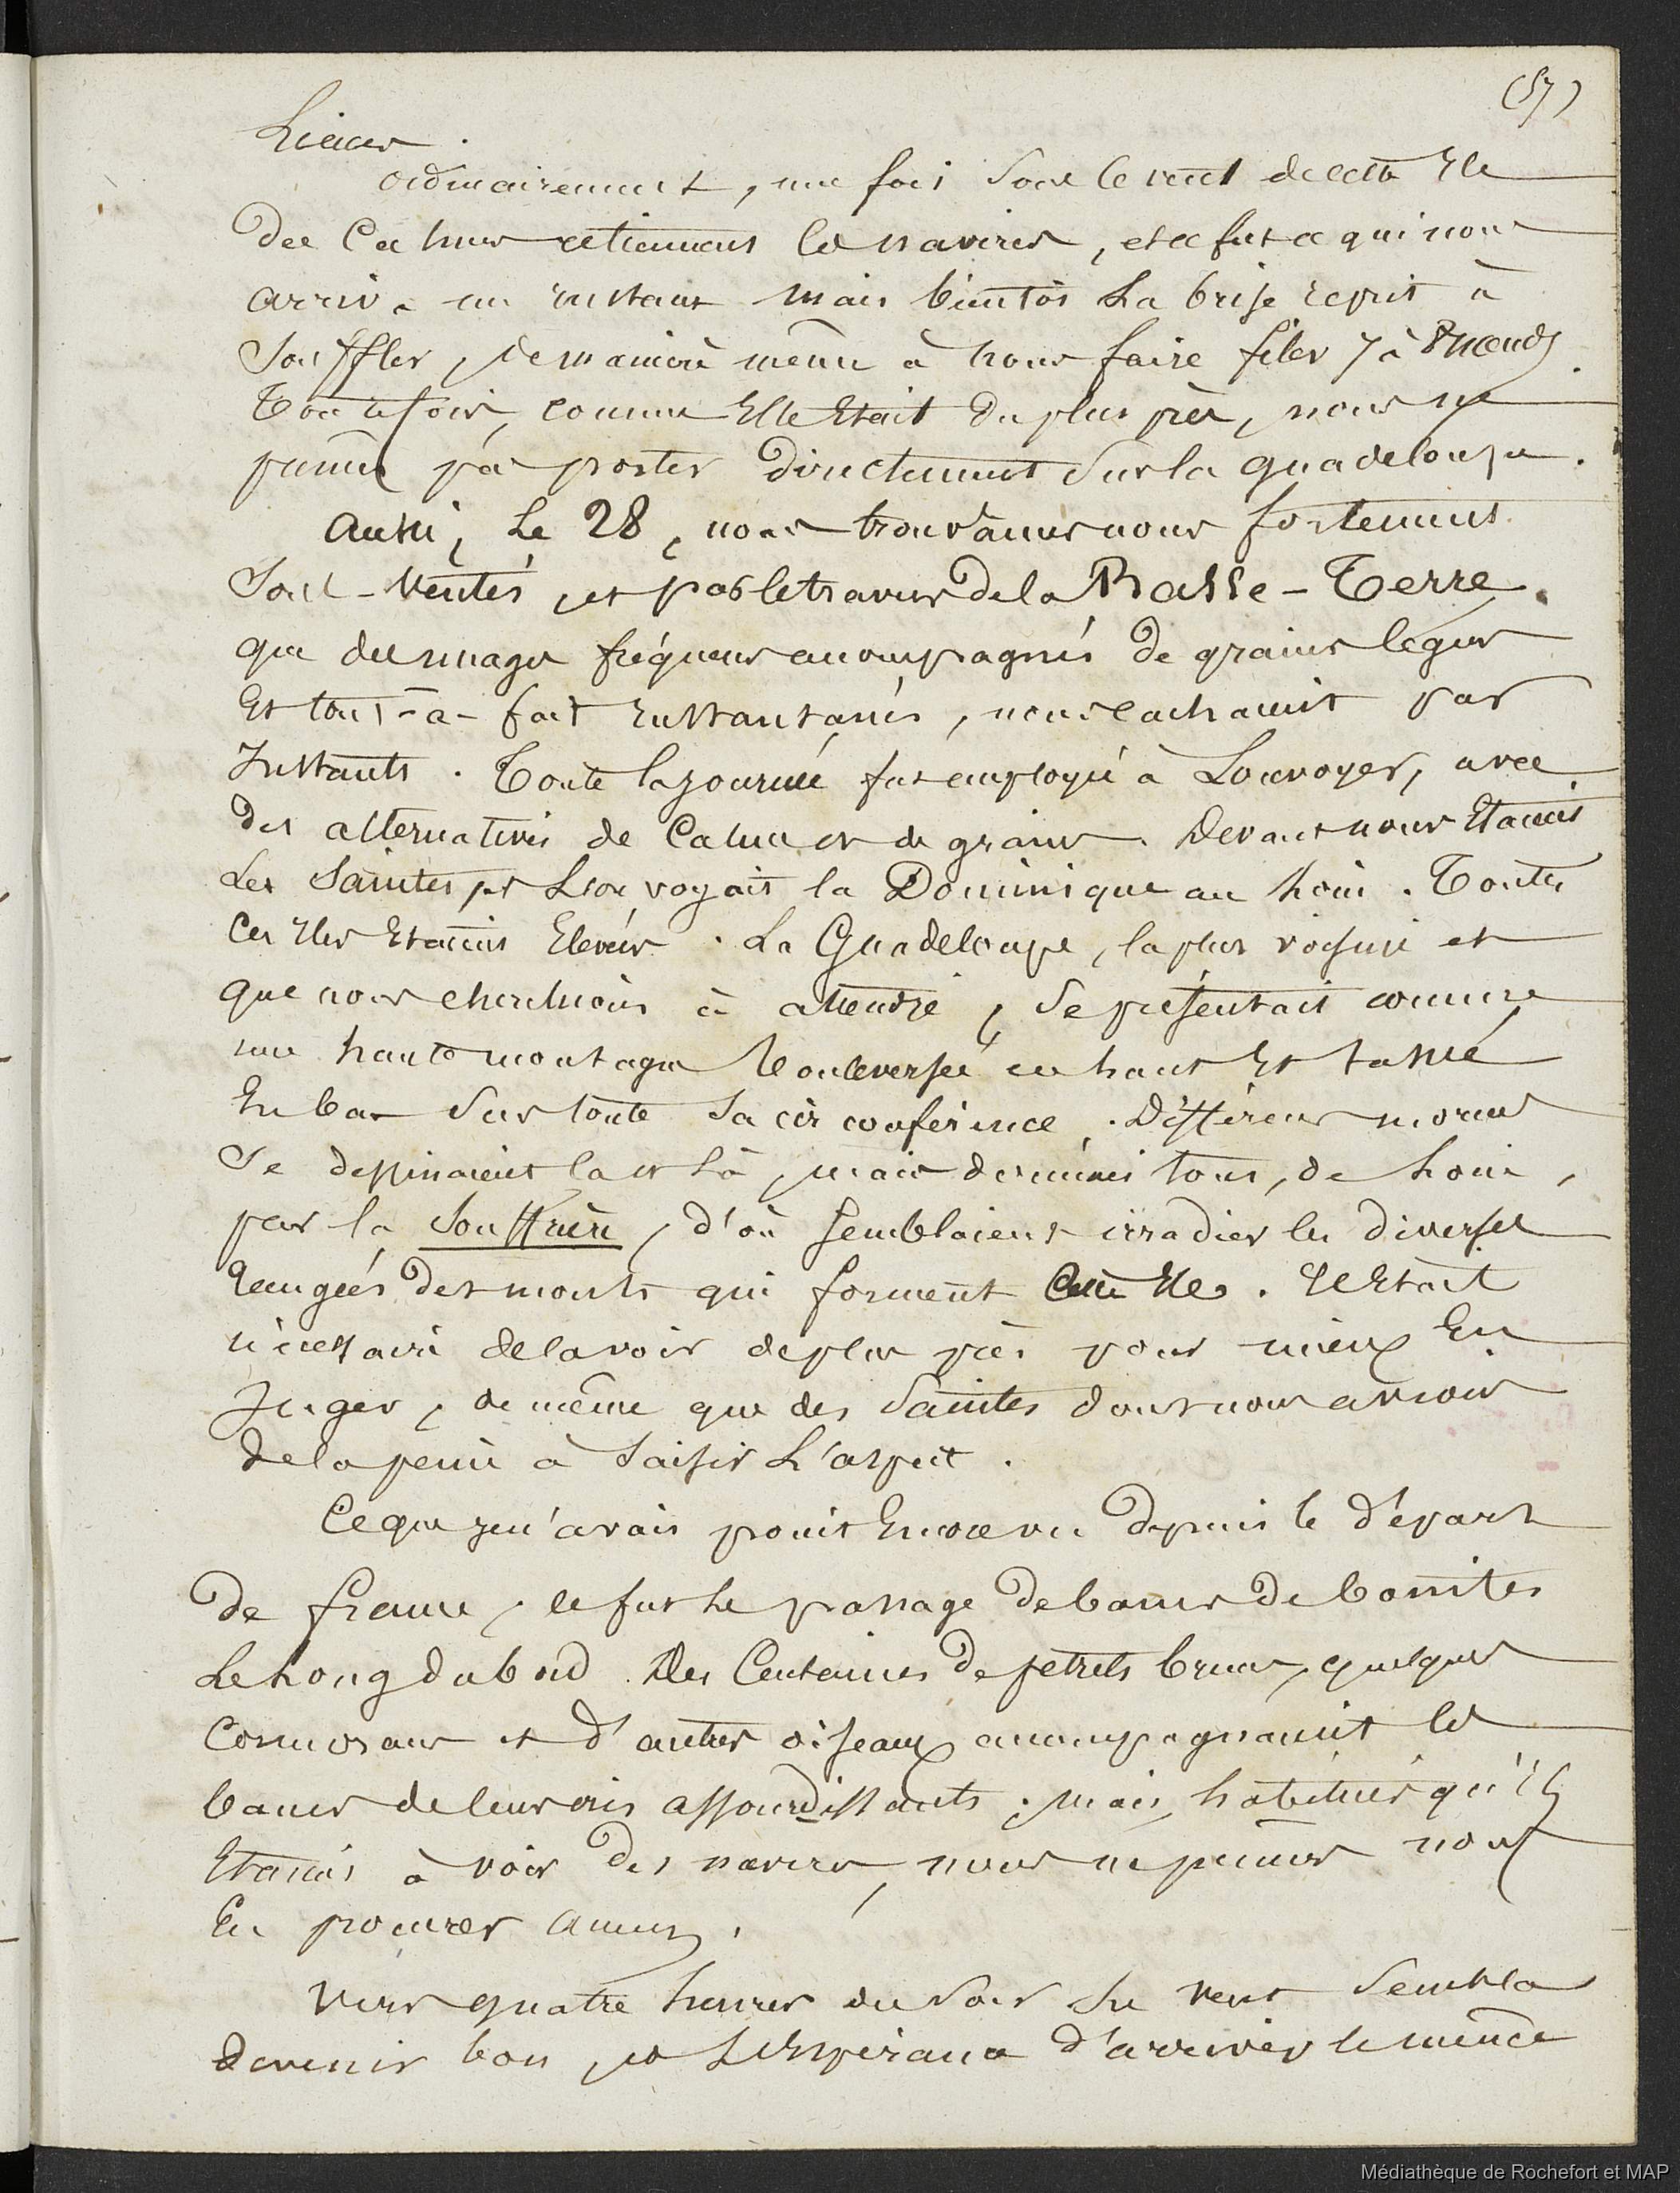 (57)
Lieues.
ordinairement, une fois sous le vent de cette Ile
des Calmes retiennent les navires, et ce fut ce qui nous
arriva un instant mais bientôt la brise reprit à
souffler, de manière même à nous faire filer 7 à 8 nœuds.
Toutefois, comme Elle Etait du plus près, nous ne
pûmes pas porter directement sur la guadeloupe.
Aussi, Le 28, nous trouvâmes nous fortement
Sous-Ventés, et par le travers de la Basse-Terre,
que des nuages fréquens accompagnés de grains légers
Et tout-à-fait Instantanés, nous cachaient par
Instants. Toute la journée fut employée à Louvoyer, avec
des alternatives de Calmes et de grains. Devant nous Etaient
Les Saintes, et L'on voyait la Dominique au loin. Toutes
Ces Iles Etaient Elevées. La Guadeloupe, la plus voisine et
que nous cherchions à atteindre, se présentait comme
une haute montagne bouleversée en haut Et tassée
En bas sur toute sa circonférence. Différens mornes
se dessinaient là et là, mais dominés tous, de loin,
par la Souffrière, d'où semblaient irradier les diverses
rangées des monts qui forment Cette Ile. Il Etait
nécessaire de la voir de plus près pour mieux En
Juger, de même que des Saintes dont nous avions
de la peine à saisir L'aspect.
Ce que je n'avais point Encore vu depuis le départ
de france, ce fut Le passage de bancs de bonites
Le Long du bord. Des Centaines de petrels bruns, quelques
Cormorans et d'autres oiseaux accompagnaient les
bancs de leurs cris assourdissants; mais, habitués qu'ils
Etaient à voir des navires, nous ne pûmes nous
En procurer aucun.
Vers quatre heures du soir Le vent sembla
devenir bon, et L'Espérance d'arriver le même